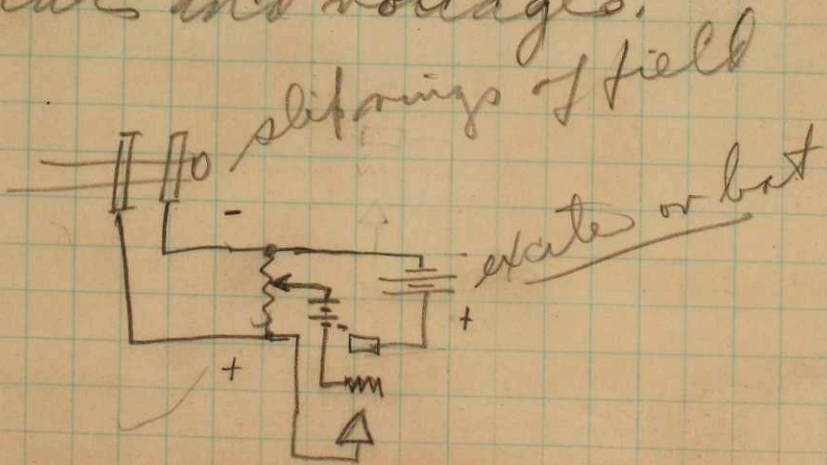 and voltages.
slip rings of field
exciter or bat
-
+
+